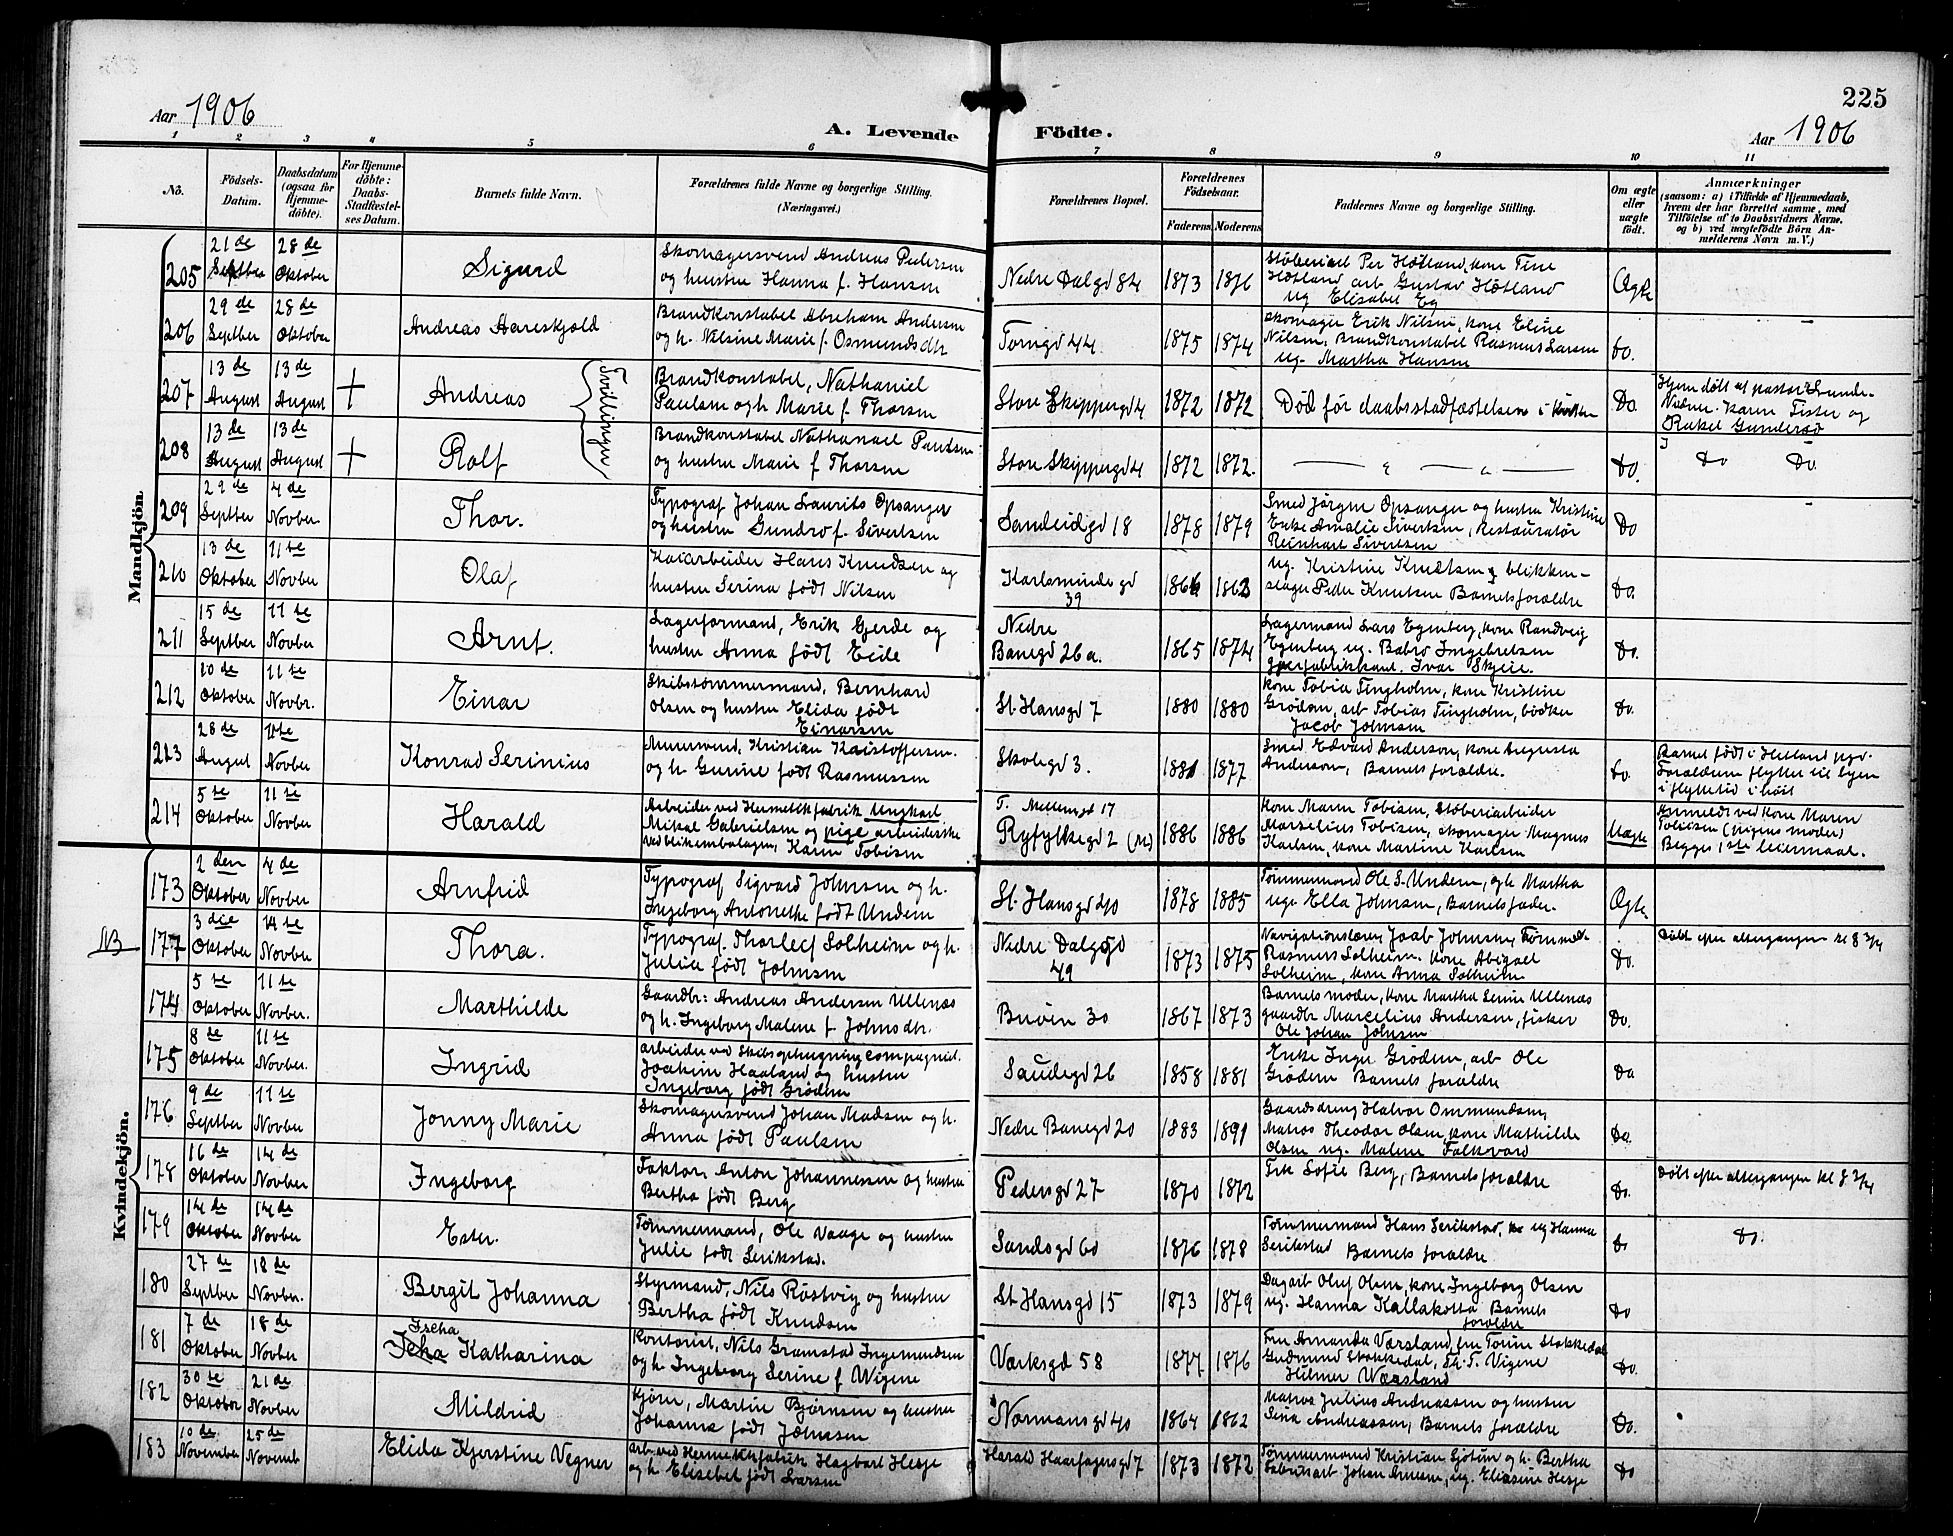 225
Aar 1906
A. Levende Födte.
Aar 1906
1 2 3 4 5 6 7 8 9 10 11
No.
Födsels-Datum.
Daabsdatum (ogsaa for Hjemme-döbte).
For Hjemme-döbte: Daabs-Stadfæstel-ses Datum.
Barnets fulde Navn.
Forældrenes fulde Navne og borgerlige Stilling. (Næringsvei.)
Forældrenes Bopæl.
Forældrenes Födselsaar.
Faderens. Moderens
Faddernes Navne og borgerlige Stilling.
Om ægte eller uægte födt.
Anmærkninger
(saasom: a) i Tilfælde af Hjemmedaab, hvem der har forrettet samme, med Tilföielse af to Daabsvidners Navne. og b) ved uægtefödte Börn An-melderens Navn m. V.)
Mandkjön.
205 21de Septber 28de Oktober Sigurd
Skomagersvend Andreas Pedersen
og hustru Hanna f. Hansen
Nedre Dalgd 84 1873 1876
Støberiarb Per Høtland, kone Tine
Høtland arb Gustav Høtland
ug Elisabet Eg
Ægte
206 29de Septber 28de Oktober Andreas Aareskjold
Brandkonstabel Abraham Andersen
og h. Nilsine Marie f. Osmundsdtr
Torngd 44 1875 1874
Skomager Erik Nilsen, kone Eline
Nilsen, Brandkonstabel Rasmus Larsen
ug. Martha Hansen
do.
207 13de August 13de August + Andreas
Tvillinger
Brandkonstabel, Nathaniel
Paulsen og h Marie f. Thorsen
Store Skippergd 4 1872 1872
Død før daabsstadfæstelsen i kirken
Do.
Hjemdøbt af pastor Lunde.
Vidner. Karen Tister og
Rakel Gunderød
208 13de August 13de August + Rolf
Brandkonstabel Nathanael Paulsen
og hustru Marie f Thorsen
Store Skippergd 4 1872 1872.
Do.
Do Do.
209 29de Septber 4de Novber. Thor.
Typograf Johan Laurits Opsanger
og hustru Gundro f. Sivertsen
Sandeidgd 18 1878 1879
Smed Jørgen Opsanger og hustru Kristine
Enke Amalie Sivertsen, Restauratør
Reinhart Sivertsen
Do
210 13de Oktober 11te Novber Olaf
Kaiarbeider Hans Knudsen og
hustru Serina født Nilsen
Karlsmindegd 39 1866 1863
ug. Kristine Knutsen, blikken-
slager Peder Knutsen Barnets forældre
Do.
211 15de Septber 11te Novber Arnt.
Lagerformand, Erik Gjerde og
hustru Anna født Eide
Nedre Banegd 26a. 1865 1874
Lagermand Lars Egenberg, kone Randveig
Egenberg ug. Babro Ingebretsen
Ivar Skjeie.
Do.
212 10de Oktober 11te Novbr. Einar
Skibstømmermand, Bernhard
Olsen og hustru Elida født
Einarsen
St. Hansgd 7 1880 1880
Kone Tobia Tingholm, kone Kristine
Grødem, arb Tobias Tingholm, bødker
Jacob Johnsen
Do.
213 28de August 11te Novber Konrad Serinius
Murersvend, Kristian Kristoffersen.
og h. Gurine født Rasmussen
Skolegd 3. 1881 1877
Smed Edvard Anderson, kone Augusta
Anderson, Barnets forældre.
Do.
Barnet født i Hetland pgd.
Forældrene flyttet til byen
i flyttetid i høst
214 5te Oktober 11te Novber Harald
Arbeider ved Hermetikfabrik Ungkarl
Mikal Gabrielsen og pige arbeiderske
ved blikemballagen, Karen Tobisen
T. Mellemgd 17
Ryfylkegd 2 (M) 1886 1886
Kone Maren Tobisen, Støberiarbeider
Marselius Tobisen, skomager Magnus
Karlsen, kone Martine Karlsen
Uægte
Anmeldt ved kone Maren
Tobisen (pigens moder)
Begges 1ste leiermaal.
Kvindekjön.
173 2den Oktober 4de Novber Arnfrid
Typograf Sigvard Johnsen og h.
Ingeborg Antonette født Undem
St. Hansgd 40 1878 1885
Tømmermand Ole S. Undem, og h Martha
ug. Ella Johnsen, Barnets fader.
Ægte
NB 177 3die Oktober 14te Novber Thora.
Typograf. Thorleif Solheim og h.
Julia født Johnsen
Nedre Dalgd 49 1873 1875
Navigationslærer Joab Johnsen, Tømmerm.
Rasmus Solheim. Kone Abigael
Solheim, kone Anna Solheim
Do.
Døbt efter altergangen kl 8 3/4
174 5te Oktober 11te Novber. Marthilde
Gaardbr: Andreas Andersen Ullenæs
og h. Ingeborg Malene f. Johnsdtr.
Buøen 30 1867 1873
Barnets moder, kone Martha Serine Ullenæs
gaardbr Marcelius Andersen, fisker
Ole Johan Johnsen
Do.
175 8de Oktober 11te Novber. Ingrid
arbeider ved Skibsophugningscompagniet.
Joakim Haaland og hustru
Ingeborg født Grødem
Saudegd 26 1858 1881
Enke Inger Grødem, arb Ole
Grødem Barnets forældre
Do
176 9de Septber 11te Novber Jonny Marie
Skomagersvend Johan Madsen og h.
Anna født Paulsen
Nedre Banegd 20 1883 1891
Gaardsdreng Halvor Ommundsen,
Matros Theodor Olsen, kone Mathilde
Olsen ug. Malene Falkvard
Do.
178 16de Oktober 14de Novber Ingeborg
Faktor, Anton Johannessen og hustru
Bertha født Berg
Pedersgd 27 1870 1872
Frk Sofie Berg, Barnets forældre
Do.
Døbt efter altergangen kl 8 3/4
179 14de Oktober 14de Novber Ester.
Tømmermand, Ole Vaage og hustru
Julie født Serikstad.
Sandsgd 60 1876 1878
Tømmermand Hans Serikstad, ug Hanna
Serikstad Barnets forældre.
Do
Do.
180 27de Septber 18de Novber. Bergit Johanna
Styrmand, Nils Røstvig og hustru
Bertha født Knudsen
St Hansgd 15 1873 1879
Dagarb Oluf Olsen, kone Ingeborg Olsen
ug. Hanna Kallakotta Barnets
forældre
Do
181 7de Oktober 18de Novber
Iseha
Katharina
Kontorist, Nils Gramstad Ingemundsen
og h. Ingeborg Serine f Vigene
Værksgd 58 1877 1876
Fru Amanda Værsland, fru Tomine Stokkedal
Gudmund Stokkedal, Th. T. Vigene
Hilmer Værsland
Do.
182 30te Oktober 21de Novber Mildrid
Kjører, Martin Bjørnsen og hustru
Johanna født Johnsen
Normansgd 40 1864 1862
Matros Julius Andreassen og hustru
Sina Andreassen, Barnets forældre
Do.
183 10de November 25de Novemb Elida Kjerstine Vegner
arb ved Hermetikfabrik Hagbart Hesje
og h. Elisebet født Larsen
Harald Haarfagersgd 7 1873 1872
Tømmermand Kristian Gjøtun og h. Bertha
Fabrikarb Johan Amdsen, ug. Eliasine Hesje
Do